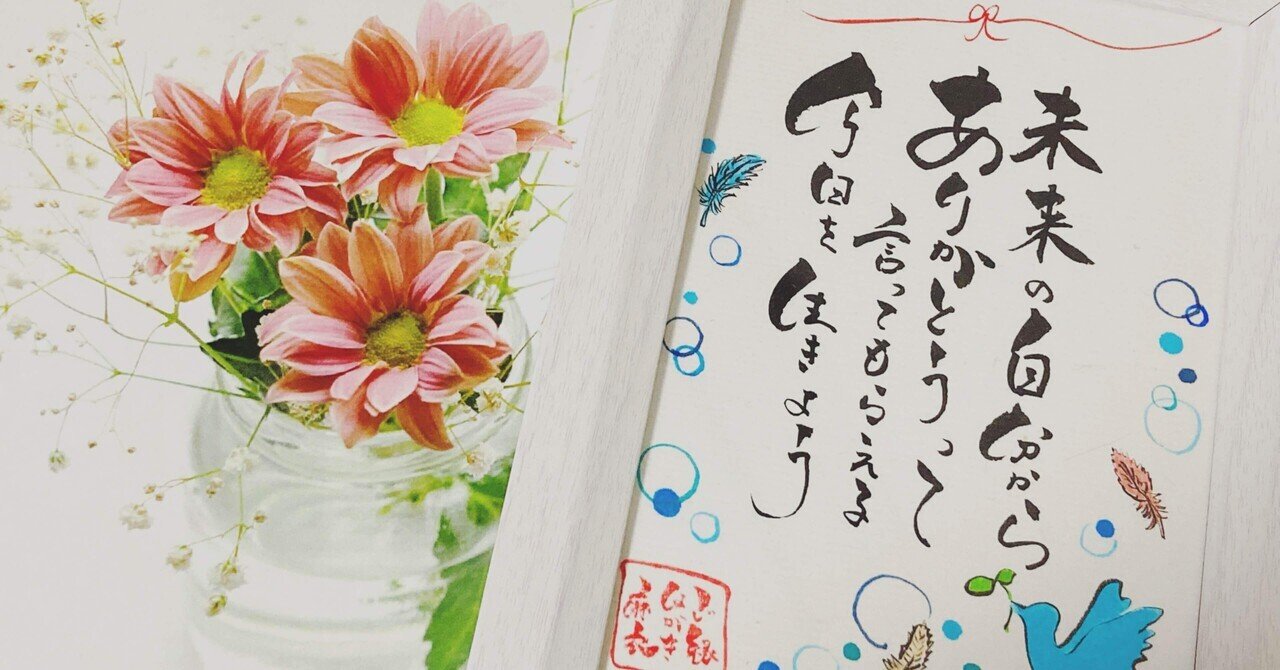 未来の自分から
ありがとうって
言ってもらえる
今日を生きよう
ご縁
はがき